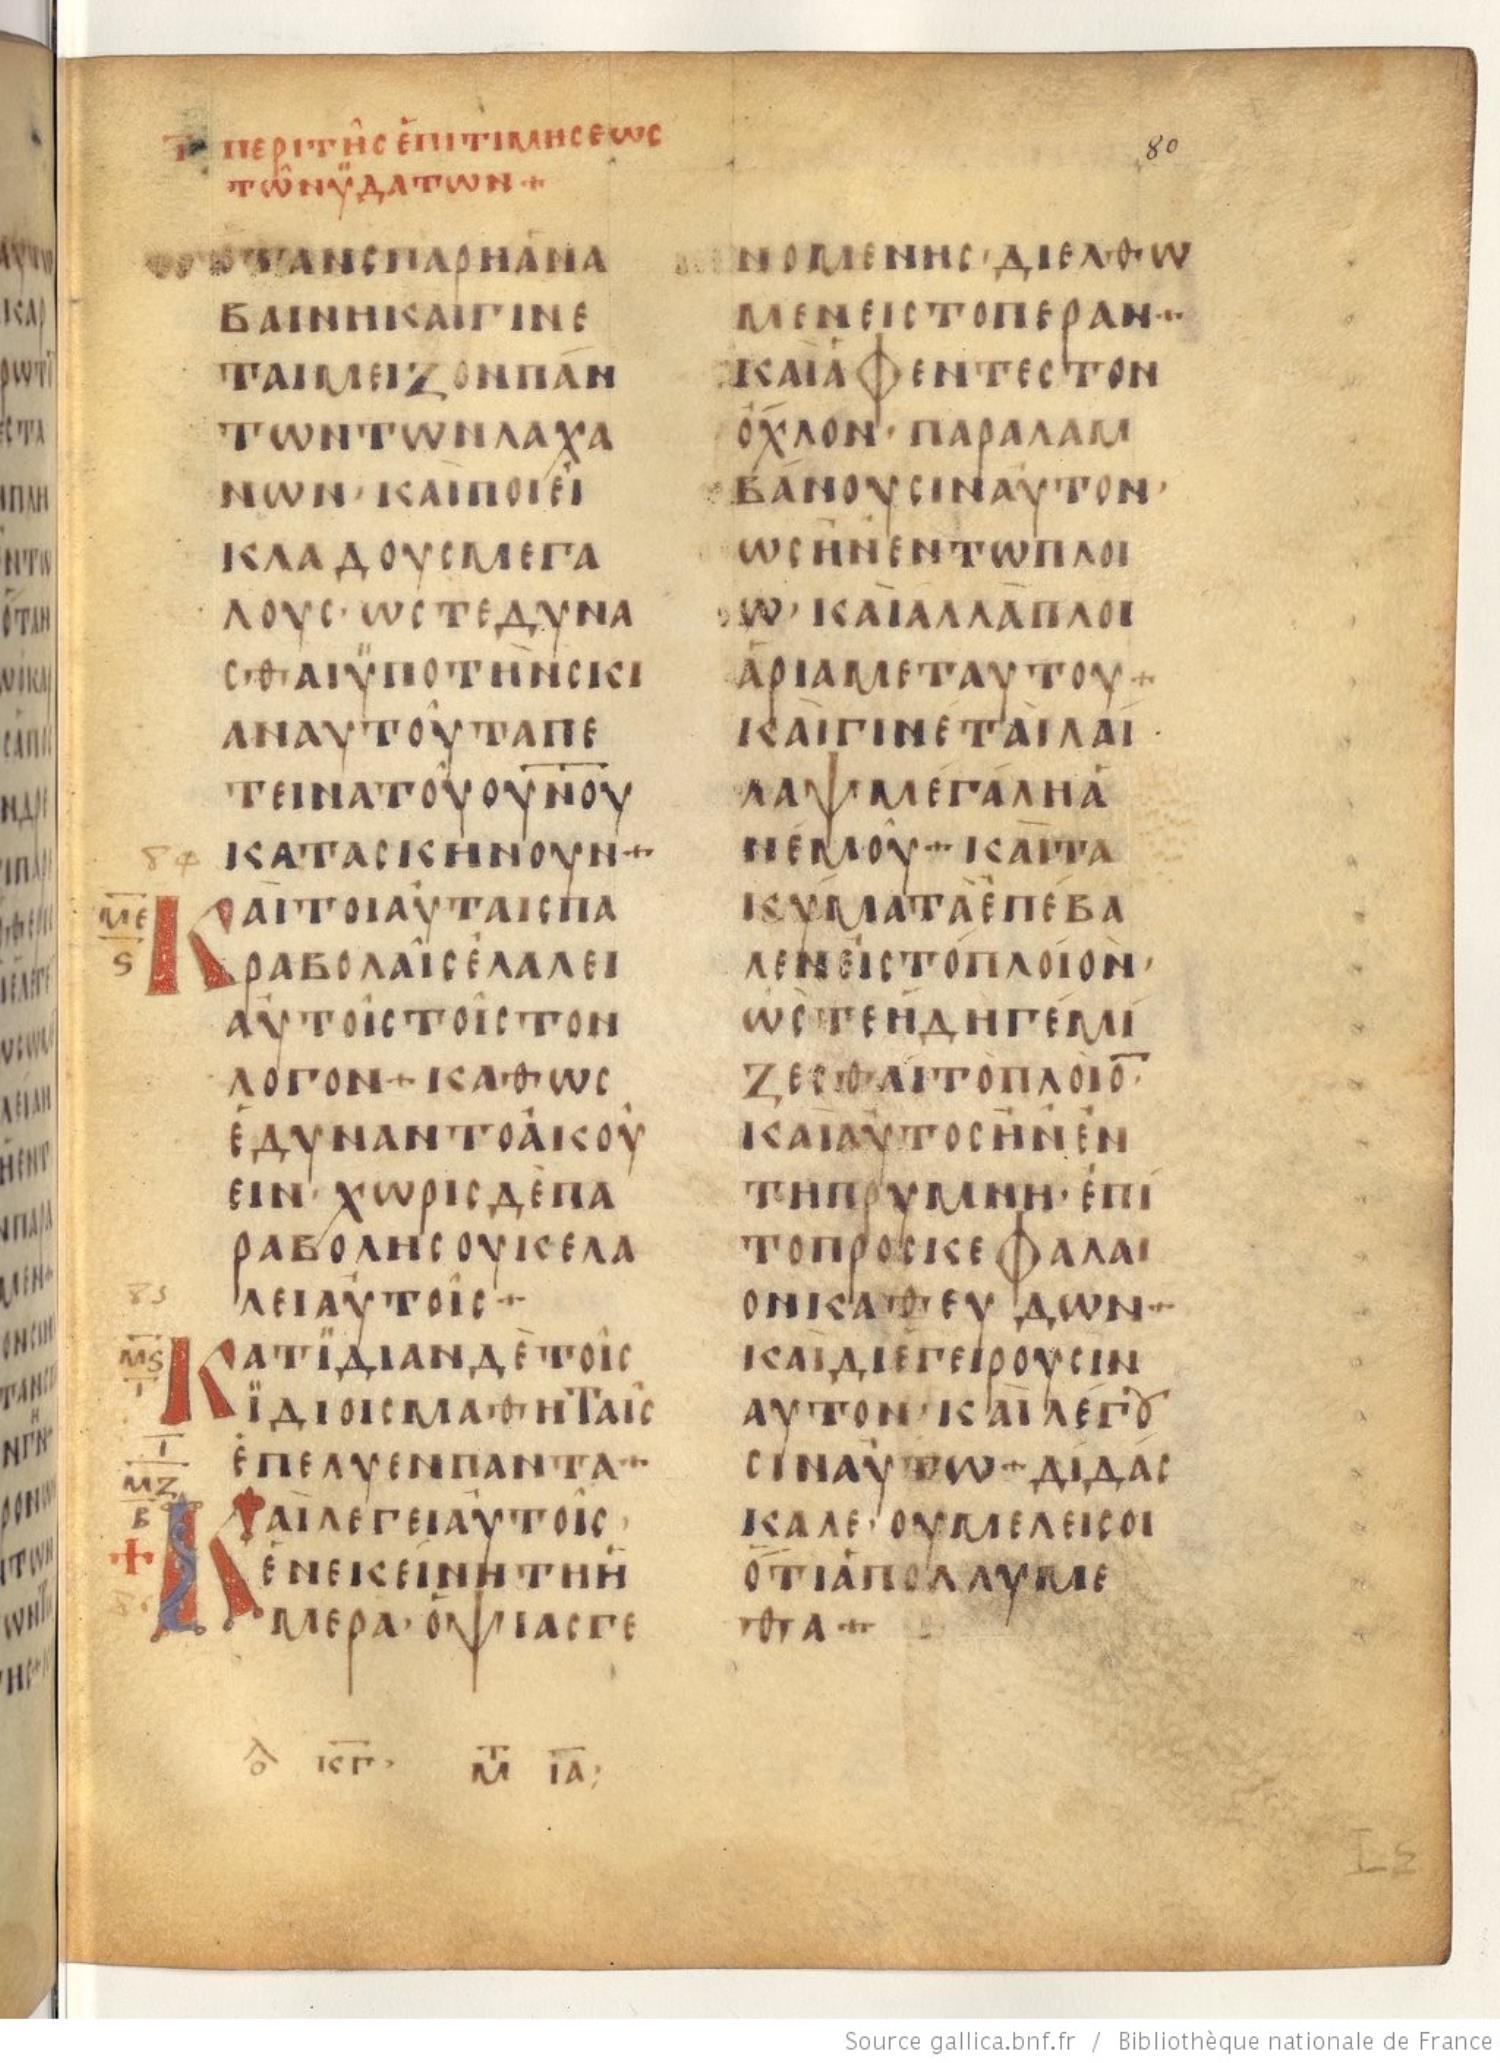 ΠΕΡΙ ΤΗC ΕΠΙΤΙΜΗCΕѠC
ΤѠΝ ΥΔΑΤѠΝ +
80
ΟΤΑΝ CΠΑΡΗ ΑΝΑ
ΒΑΙΝΗ ΚΑΙ ΓΙΝΕ
ΤΑΙ ΜΕΙΖΟΝ ΠΑΝ
ΤѠΝ ΤѠΝ ΛΑΧΑ
ΝѠΝ· ΚΑΙ ΠΟΙΕΙ
ΚΛΑΔΟΥC ΜΕΓΑ
ΛΟΥC· ѠCΤΕ ΔΥΝΑ
CΘΑΙ ΫΠΟ ΤΗΝ CΚΙ
ΑΝ ΑΥΤΟΥ ΤΑ ΠΕ
ΤΕΙΝΑ ΤΟΥ ΟΥ̅Ν̅ΟΥ
ΚΑΤΑCΚΗΝΟΥΝ +
84
Μ̅Ε̅
Ϛ
ΚΑΙ ΤΟΙΑΥΤΑΙC ΠΑ
ΡΑΒΟΛΑΙC ΕΛΑΛΕΙ
ΑΥΤΟΙC ΤΟΙC ΤΟΝ
ΛΟΓΟΝ + ΚΑΘѠC
ΕΔΥΝΑΝΤΟ ΑΚΟΥ
ΕΙΝ· ΧѠΡΙC ΔΕ ΠΑ
ΡΑΒΟΛΗC ΟΥΚ ΕΛΑ
ΛΕΙ ΑΥΤΟΙC +
85
Μ̅Ϛ̅
Ι
ΚΑΤ ΪΔΙΑΝ ΔΕ ΤΟΙC
ΪΔΙΟΙC ΜΑΘΗΤΑΙC
ΕΠΕΛΥΕΝ ΠΑΝΤΑ +
Ι̅
Μ̅Ζ̅
Β
ΚΑΙ ΛΕΓΕΙ ΑΥΤΟΙC
ΕΝ ΕΚΕΙΝΗ ΤΗ Η
ΜΕΡΑ· ΟΨΙΑC ΓΕ
ΝΟΜΕΝΗC· ΔΙΕΛΘѠ
ΜΕΝ ΕΙC ΤΟ ΠΕΡΑΝ +
ΚΑΙ ΑΦΕΝΤΕC ΤΟΝ
ΟΧΛΟΝ· ΠΑΡΑΛΑΜ
ΒΑΝΟΥCΙΝ ΑΥΤΟΝ·
ѠC ΗΝ ΕΝ ΤѠ ΠΛΟΙ
Ѡ· ΚΑΙ ΑΛΛΑ ΠΛΟΙ
ΑΡΙΑ ΜΕΤ ΑΥΤΟΥ +
ΚΑΙ ΓΙΝΕΤΑΙ ΛΑΙ
ΛΑΨ ΜΕΓΑΛΗ Α
ΝΕΜΟΥ + ΚΑΙ ΤΑ
ΚΥΜΑΤΑ ΕΠΕΒΑ
ΛΕΝ ΕΙC ΤΟ ΠΛΟΙΟΝ·
ѠCΤΕ ΗΔΗ ΓΕΜΙ
ΖΕCΘΑΙ ΤΟ ΠΛΟΙΟ̅·
ΚΑΙ ΑΥΤΟC ΗΝ ΕΝ
ΤΗ ΠΡΥΜΝΗ· ΕΠΙ
ΤΟ ΠΡΟCΚΕΦΑΛΑΙ
ΟΝ ΚΑΘΕΥΔѠΝ +
ΚΑΙ ΔΙΕΓΕΙΡΟΥCΙΝ
ΑΥΤΟΝ· ΚΑΙ ΛΕΓȢ
CΙΝ ΑΥΤѠ + ΔΙΔΑC
ΚΑΛΕ· ΟΥ ΜΕΛΕΙ CΟΙ
ΟΤΙ ΑΠΟΛΛΥΜΕ
ΘΑ +
Κ̅Γ̅· Μ Ι̅Α̅
Source gallica.bnf.fr / Bibliothèque nationale de France